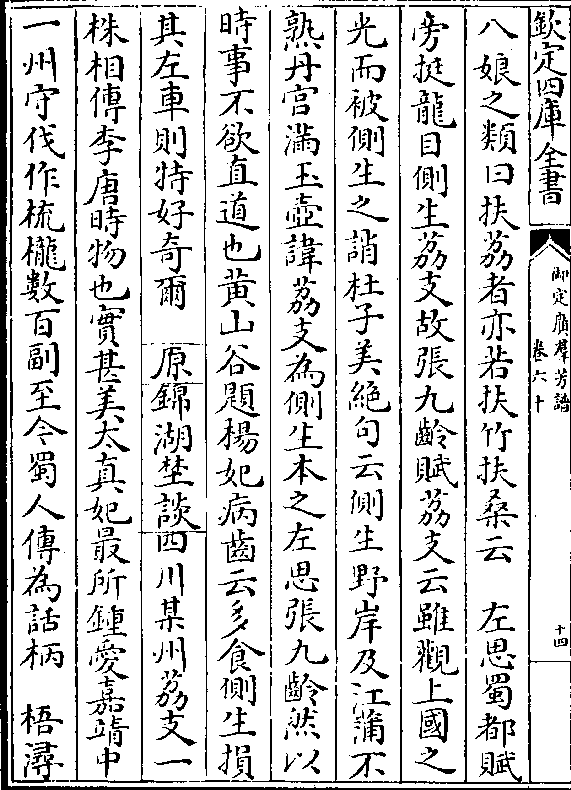 欽定四庫全書
御定廣羣芳譜
卷六十
十四
八娘之類曰扶荔者亦若扶竹扶桑云　左思蜀都賦
旁挺龍目側生荔支故張九齡賦荔支云雖觀上國之
光而被側生之誚杜子美絶句云側生野岸及江蒲不
熟丹宫滿玉壺諱荔支為側生本之左思張九齡然以
時事不欲直道也黄山谷題楊妃病齒云多食側生損
其左車則特好奇爾　原錦湖埜談四川某州荔支一
株相傳李唐時物也實甚美太真妃最所鍾愛嘉靖中
一州守伐作梳櫳數百副至今蜀人傳為話柄　梧潯